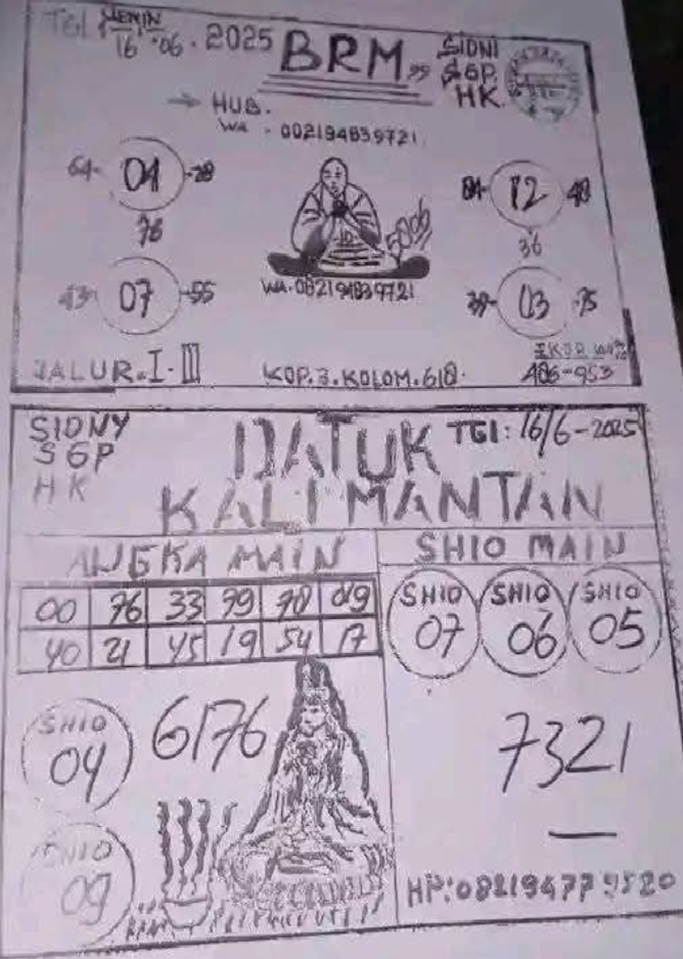 TGl SENIN
16 - 06 - 2025
BRM
SIDNI
SGP.
HK.
→ HUB.
WA - 002194839721
64- 01 -28
76
84- 12 -48
36
5006
43- 07 -55
WA-082194839721
39- 03 -75
JALUR. I - III
KOP. 3. KOLOM. 618.
EKOR
486-953
SIDNY
SGP
HK
DATUK
TGl: 16/6-2025
KALIMANTAN
ANGKA MAIN
SHIO MAIN
00 76 33 99 78 09
40 21 45 19 54 17
SHIO 07
SHIO 06
SHIO 05
SHIO 04
6176
7321
SHIO 09